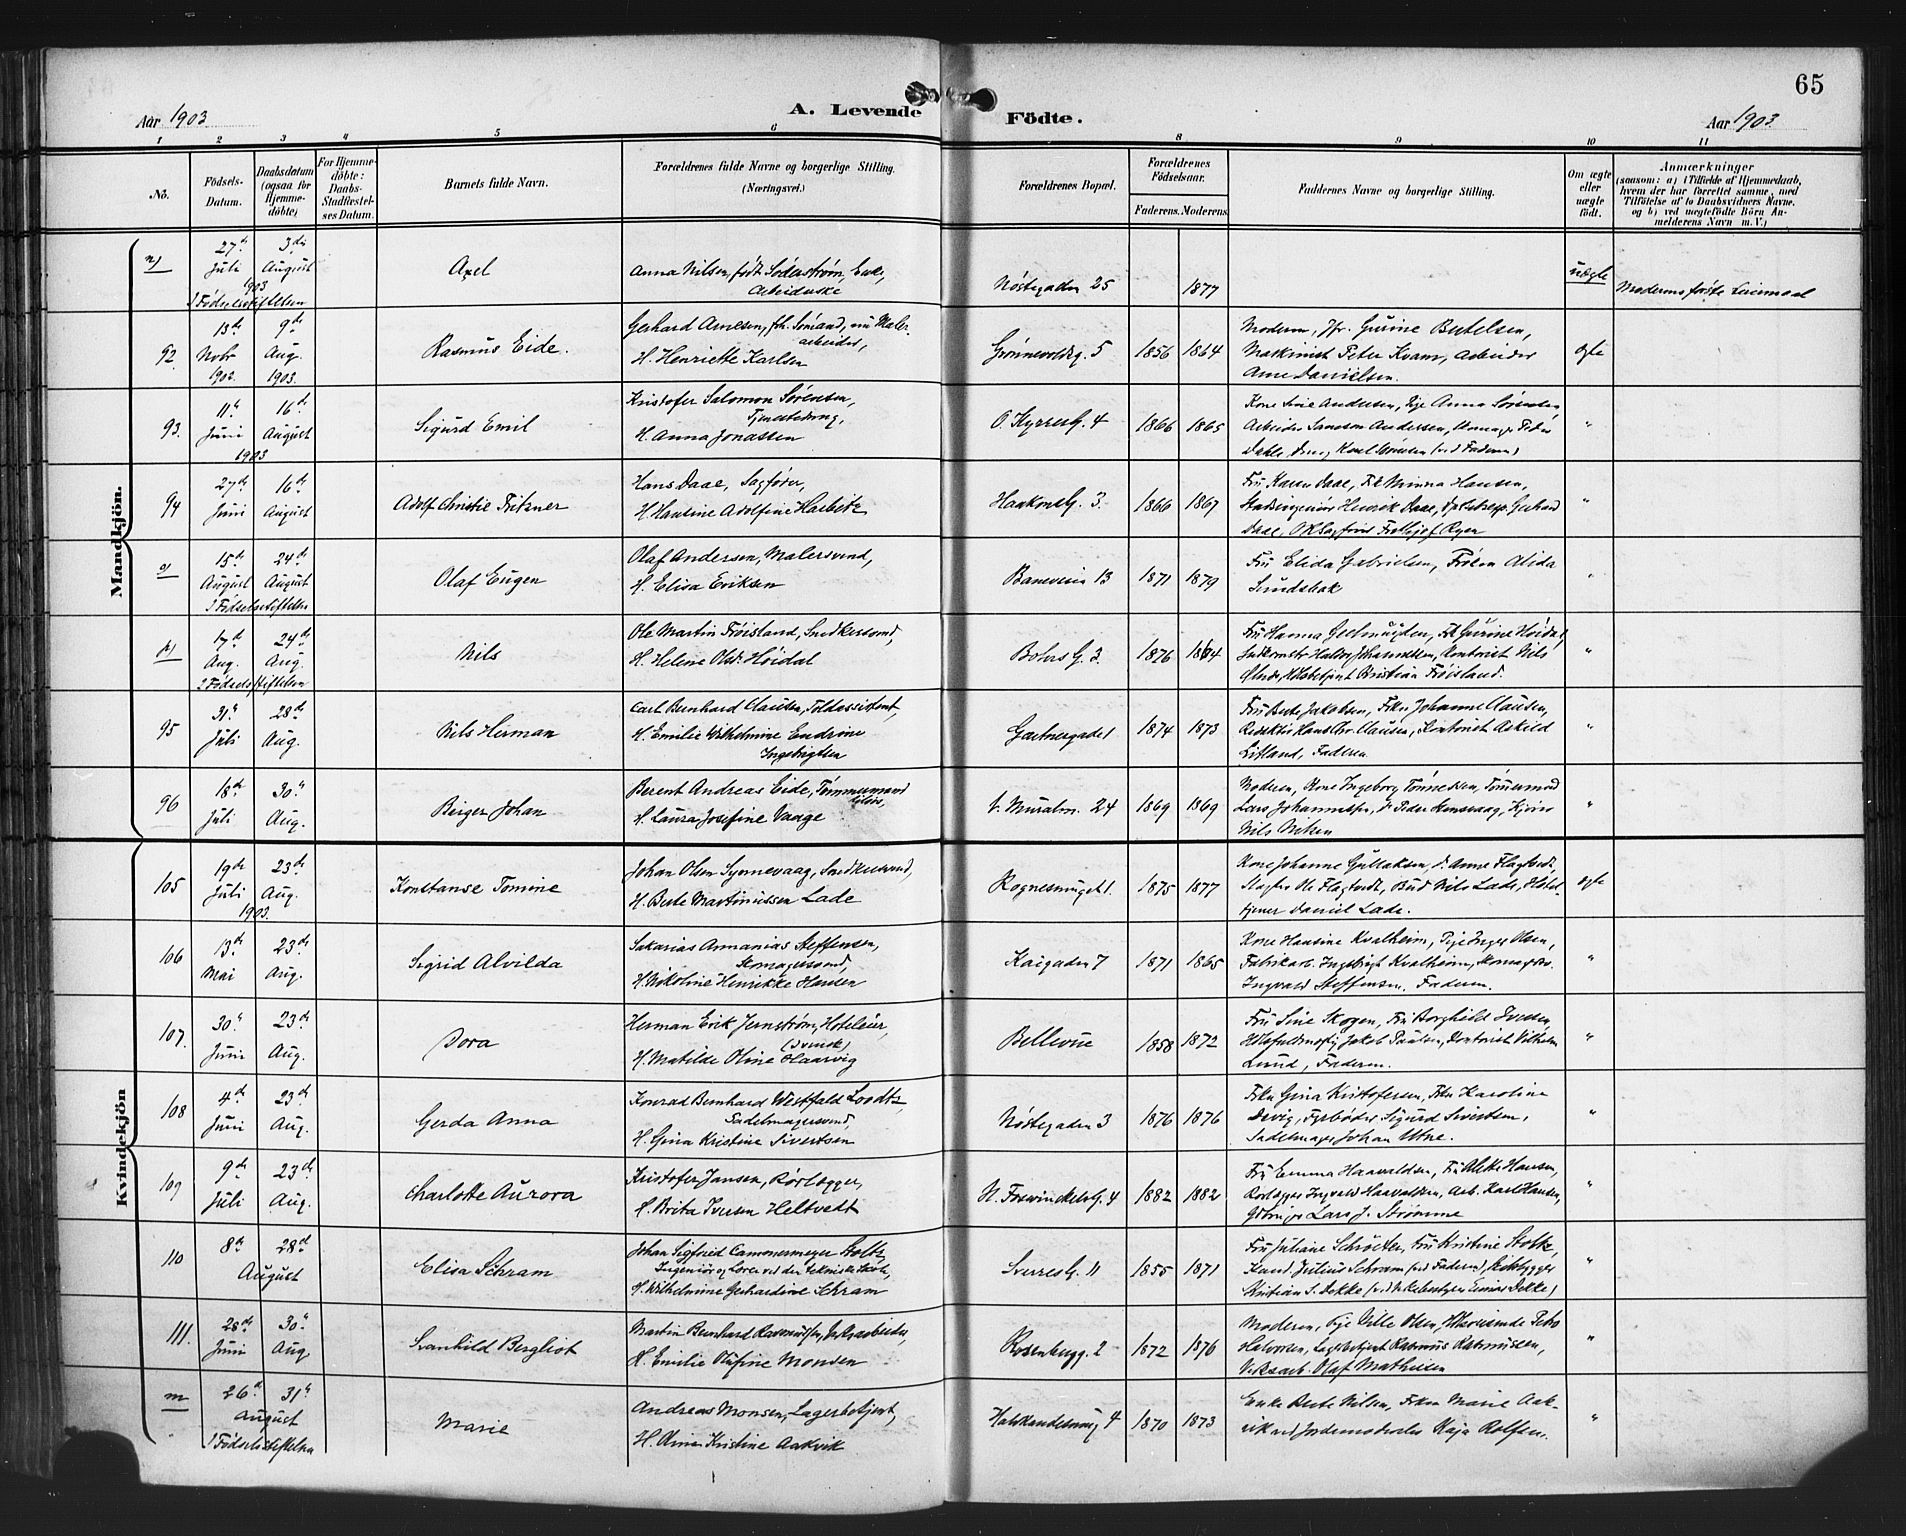 65
Aar 1903
A. Levende Födte.
Aar 1903
1 2 3 4 5 6 8 9 10 11
No.
Födsels-Datum.
Daabsdatum (ogsaa for Hjemme-döbte)
For Hjemme-döbte: Daabs-Stadfæstel-ses Datum.
Barnets fulde Navn.
Forældrenes fulde Navne og borgerlige Stilling. (Næringsvei.)
Forældrenes Bopæl.
Forældrenes Födselsaar.
Faderens. Moderens.
Faddernes Navne og borgerlige Stilling.
Om ægte eller uægte födt.
Anmærkninger
(saasom: a) i Tilfælde af Hjemmedaab,
hvem der har forrettet samme, med
Tilföielse af to Daabsvidners Navne,
og b) ved uægtefödte Börn An-
melderens Navn m. V.)
Mandkjön.
n) 27de Juli 3die August 1903
I Fødselsstiftelsen
Axel
Anna Nilsen, født Söderström, Enke,
Arbeiderske
Nøstegaden 25
1877
uægte
Moderens første Leiermaal
92. 13de Novbr 1902. 9de Aug. 1903.
Rasmus Eide.
Gerhard Arnesen, fh. Sömand, nu Maler-
arbeider,
H. Henriette Karlsen
Grønnevoldsg. 5
1856 1864
Moderen, Jfr. Gurine Butelsen,
Maskinist Peter Kvam, Arbeider
Arne Danielsen.
ægte
93. 11te Juni 16de August 1903
Sigurd Emil
Kristofer Salomon Sørensen,
H. Anna Jonassen
O. Kyrresg. 4
1866 1865
Kone Sine Andersen, Pige Anna Sørensen,
Arbeider Samson Andersen, Skomager Peder
Dahle, Dreng Karl Sørensen (ved Faderen)
"
94 27de Juni 16de August
Adolf Christie Fritzner
Hans Daae, Sagfører,
H. Hansine Adolfine Harbitz
Haakonsg. 3.
1866 1867
Fru Karen Daae, Frk Minna Hansen,
Stadsingeniør Henrik Daae,
Daae, ORSagfører Fritthjof Ryan
"
o) 15de August 24de August
I Fødselsstiftelsen
Olaf Eugen
Olaf Andersen, Malersvend,
H. Elisa Eriksen
Baneveien 13
1871 1879
Fru Elida Gabrielsen, Frøken Alida
Sundsbak
"
p) 17de Aug. 24de Aug.
I Fødselsstiftelsen
Nils
Ole Martin Frøisland, Snedkersvend,
H. Helene Olsdr. Høidal
Bohrs G. 3.
1876 1874
Fru Hanna Geelmuyden, Frk Gurine Høidal,
Kontorist Nils
Kristian Frøisland.
"
95 31te Juli 28de Aug.
Nils Herman
Carl Bernhard Clausen, Toldassistent,
H. Emilie Wilhelmine Endrine
Ingebrigtsen
Gartnergade 1
1874 1873
Fru Berte Jakobsen, Frkn Johanne Clausen,
Redaktør Hans Chr. Clausen, Kontorist Askild
Lifland, Faderen
"
96 18de Juli 30te Aug.
Birger Johan
Berent Andreas Eide, Tømmermand
H. Laura Josefine Vaage
V. Muralm. 24
1869 1869
Moderen, Kone Ingeborg Tønnessen, Tømmermand
Lars Johannessen,
Nils Nilsen
"
Kvindekjön
105 19de Juli 23de Aug. 1903.
Konstanse Tomine
Johan Olsen Synnevaag, Snedkersvend,
H. Berte Martinussen Lade
Rognesmuget 1.
1875 1877
Kone Johanne Gullaksen, do Anne Flagtvedt,
Slagter Ole Flagtvedt, Bud Nils Lade, Hotel-
tjener Daniel Lade.
ægte
106 13de Mai 23de Aug.
Sigrid Alvilda
Sakarias Annanias Steffensen,
Skomagersvend,
H. Nikoline Henrikke Hansen
Kaigaden 7
1871 1865
Kone Hansine Kvalheim, Pige Inger Olsen,
Fabrikarb. Ingebrigt Kvalheim, Skomagersv.
Ingvald Steffensen. Faderen.
"
107. 30te Juni 23de Aug.
Dora
Herman Erik Jernstrøm, Hoteleier,
(svensk)
H. Matilde Oline Haarvig
Bellevue
1858 1872
Fru Sine Skogen, Fru Borghild Iversen,
Jakob Paulsen, Kontorist Vilhelm
Lund, Faderen.
"
108 4de Juni 23de Aug.
Gerda Anna
Konrad Bernhard Westfald Loodtz,
Sadelmagersvend,
H. Gina Kristine Sivertsen
Nøstegaden 3
1876 1876
Frkn Gina Kristofersen, Frkn Karoline
Devig, Fyrbøder Sigurd Sivertsen,
Sadelmager Johan Utne.
"
109 9de Juli 23de Aug.
Charlotte Aurora
Kristofer Jansen, Rørlægger,
H. Brita Iversen Heltvedt
N. Fosswinckelsg. 4
1882 1882
Fru Emma Haavaldsen, Fru Alette Hansen,
Rørlægger Ingvald Haavaldsen, Arb. Karl Hansen,
Lars J. Strømme
"
110 8de 28de August
Elisa Schram
Johan Sigfried Camonermeyer Stoltz
Ingeniør og Lærer ved den tekniske Skole,
H. Wilhelmine Gerhardine Schram
Sverresg. 11
1855 1871
Fru Juliane Schröeter, Fru Kristine Stoltz,
Kand. Julius Schram (ved Faderen), Skibbygger
Kristian S. Dekke
"
111. 28de Juni 30te Aug.
Svanhild Bergliot
Martin Bernhard Rasmussen,
H. Emilie Olufine Monsen
Rosenbergg. 2
1872 1876
Moderen, Pige Ville Olsen,
Halvorsen, Lagerbetjent Rasmus Rasmussen,
Verksarb. Olaf Mathisen
"
m 26de 31te August
I Fødselsstiftelsen
Marie
Andreas Monsen, Lagerbetjent,
H. Kristine Aakvik
Halvkandesmug 4
1870 1873
Enke Berte Nilsen, Frkn Marie Aak-
vik, ved Jordemoderelev Kaja Rolfsen.
"